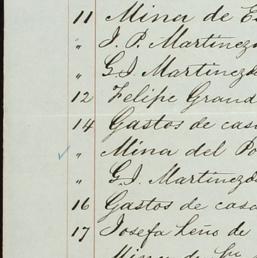 11 Mina de
" J. P. Martinez
" G. J. Martinez
12 Felipe
14 Gastos de casa
" Mina del
" G. J. Martinez
16 Gastos de casa
17 Josefa Leño de
Mina de